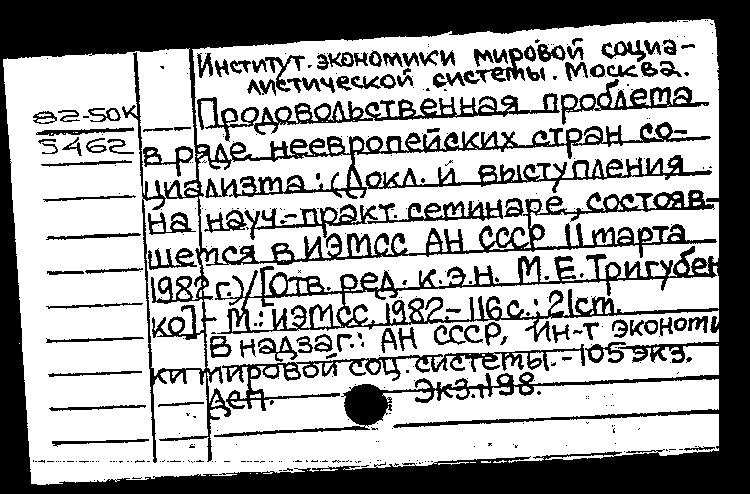 Институт экономики мировой социа-
листической системы. Москва.
82-50К
5462
Продовольственная проблема
в ряде неевропейских стран со-
циализма: (Докл. и выступления
на науч.-практ. семинаре, состояв-
шемся в ИЭМСС АН СССР 11 марта
1982 г.)/[Отв. ред. к.э.н. М.Е. Тригубен
ко].- М.: ИЭМСС, 1982.- 116 с.; 21см.
В надзаг.: АН СССР, Ин-т экономи
ки мировой соц. системы.- 105 экз.
Дсп. Экз.№98.